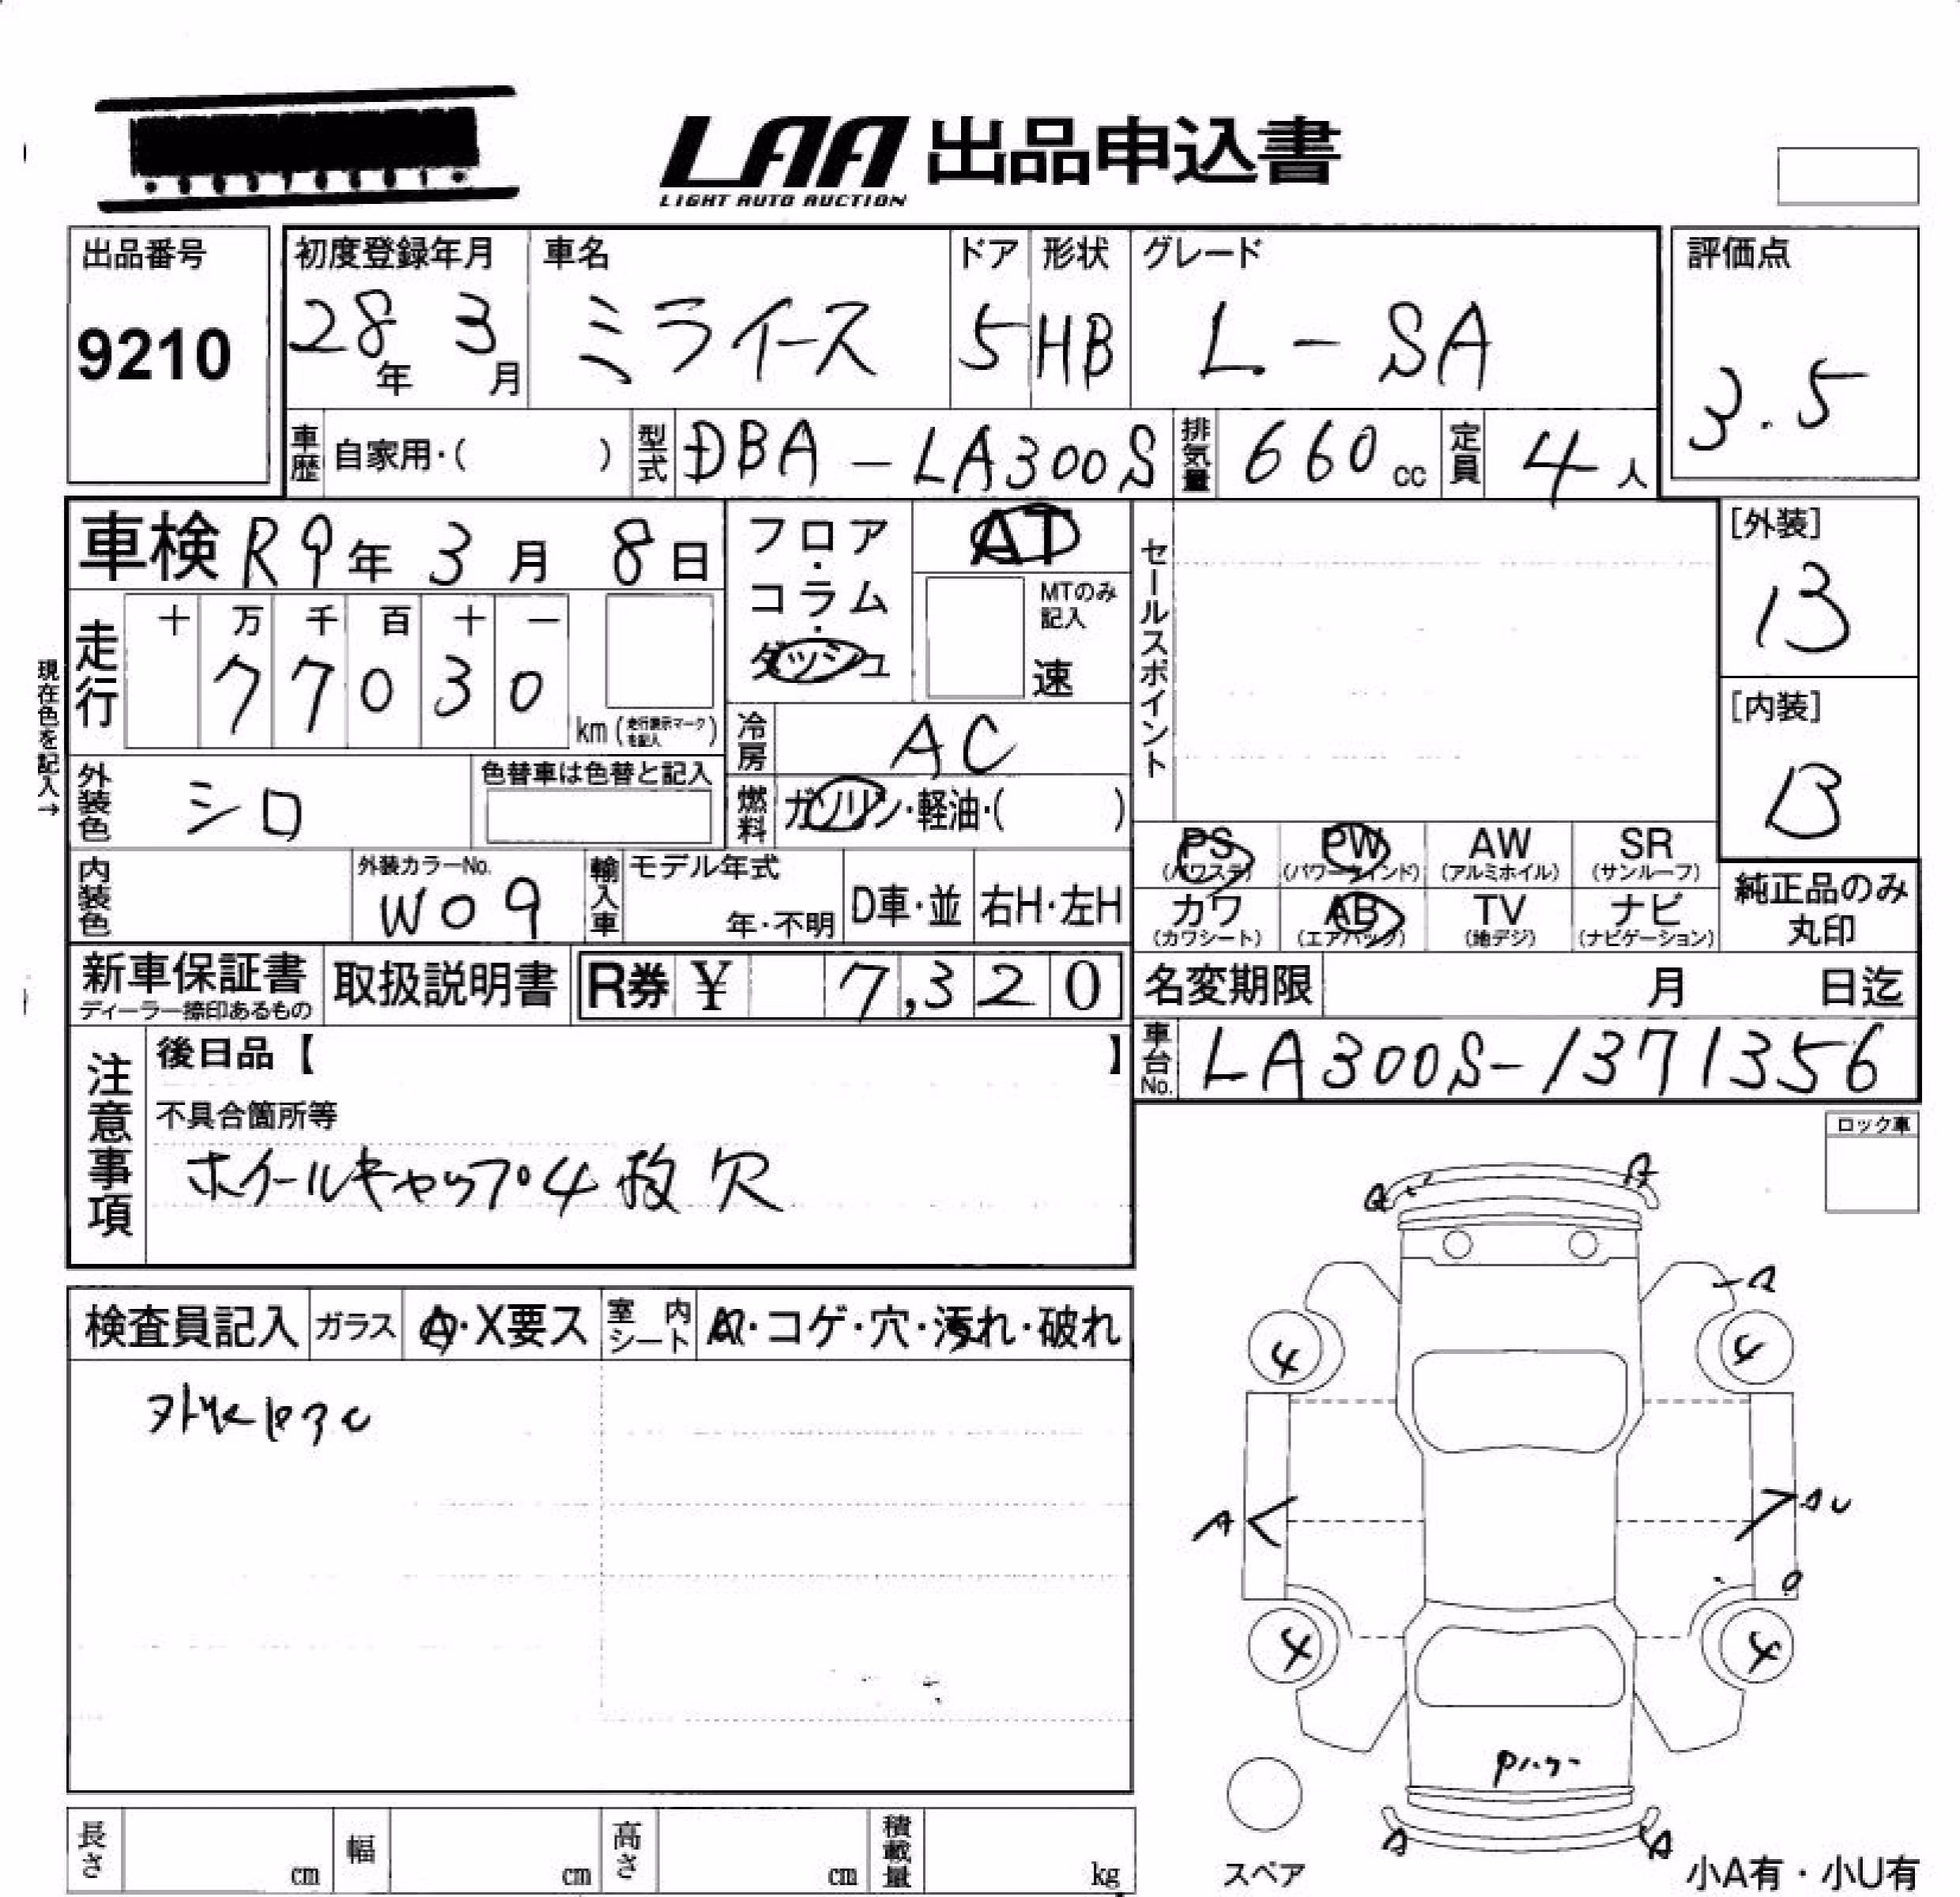 LAA 出品申込書
LIGHT AUTO AUCTION
出品番号
9210
初度登録年月
28年 3月
車名
ミライース
ドア
5
形状
HB
グレード
L-SA
評価点
3.5
車歴 自家用・( )
型式 DBA-LA300S
排気量 660cc
定員 4人
車検 R9年 3月 8日
フロア・コラム・ダッシュ
AT
MTのみ記入
速
セールスポイント
[外装]
B
[内装]
B
現在色を記入→
走行
十 万 千 百 十 一
7 7 0 3 0
km(走行表示マークを記入)
冷房 AC
外装色 シロ
色替車は色替と記入
燃料 ガソリン・軽油・( )
PS (パワステ)
PW (パワーウインド)
AW (アルミホイル)
SR (サンルーフ)
カワ (カワシート)
AB (エアバック)
TV (地デジ)
ナビ (ナビゲーション)
純正品のみ丸印
内装色
外装カラーNo.
W09
輸入車
モデル年式
年・不明
D車・並
右H・左H
新車保証書
ディーラー捺印あるもの
取扱説明書
R券 ¥ 7,320
名変期限 月 日迄
車台No. LA300S-1371356
注意事項
後日品【 】
不具合箇所等
ホイールキャップ4枚欠
ロック車
検査員記入
ガラス A・X要ス
室内シート ・コゲ・穴・汚れ・破れ
A
A
A
4
4
A
AU
4
4
A
A
スペア
小A有・小U有
長さ cm
幅 cm
高さ cm
積載量 kg